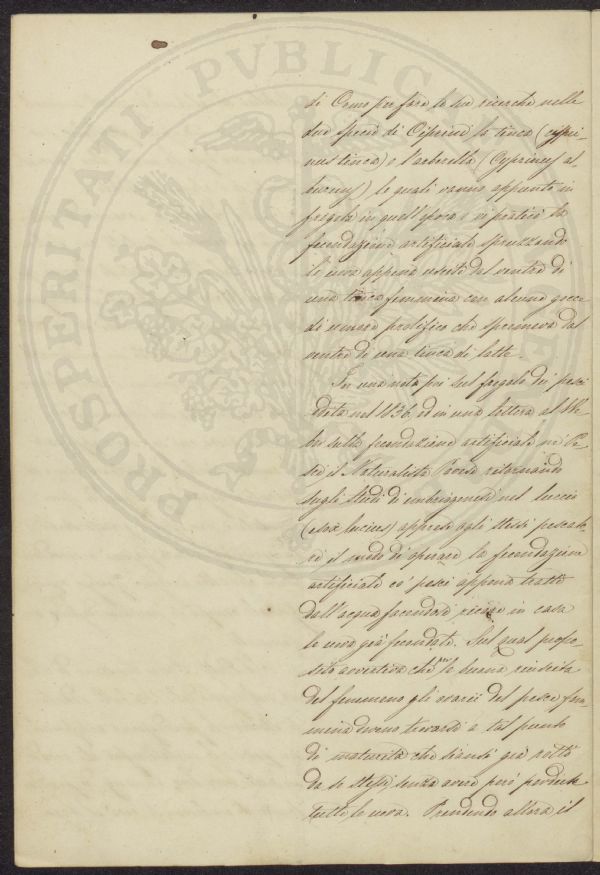 PROSPERITATI PVBLICAE
di Como per fare le sue ricerche nelle
due specie di Ciprini la tinca (cypri-
nus tinca) e l'arborella (Cyprinus al-
burnus) le quali vanno appunto in
fregola in quell'epoca e vi praticò la
fecondazione artificiale spruzzando
le uova appena uscite dal ventre di
una tinca femmina con alcune gocce
di umore prolifico che spremeva dal
ventre di una tinca di latte.
In una nota poi sul fregolo dei pesci
data nel 1836, ed in una lettera al
sulla fecondazione artificiale nei Pe-
sci il Naturalista ritornando
sugli studi di embriogenesi nel luccio
(esox lucius) apprese agli stessi pescato-
ri il modo di operare la fecondazione
artificiale co' pesci appena tratti
dall'acqua facendosi recare in casa
le uova già fecondate. Sul qual propo-
sito avvertiva che per la buona riuscita
del fenomeno gli ovarii del pesce fem-
mina devono trovarsi a tal punto
di maturità che siansi già rotti
da se stessi senza avere però perdute
tutte le uova. Prendendo allora il